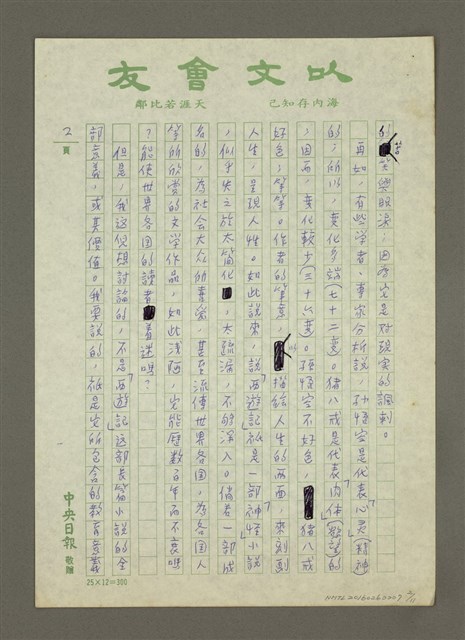 以文會友
海內存知己
天涯若比鄰
的苦笑與眼淚，因而它是對現實的諷刺。
再如，有些學者、專家分析說，孫悟空是代表「心灵」（精神
的），所以，变化多端（七十二变）。猪八戒是代表「肉体」（慾望的
），因而，变化較少（三十六变）。孫悟空不好色，猪八戒
好色，等等。作者的筆意，描繪人生的兩面，來刻劃
人生，呈現人性。如此說來，說「西遊記」祇是一部「神怪」小說
，似乎失之於太簡化，太疏漏，不夠深入。倘若一部成
名的，為社会大众所喜爱，甚至流傳世界各国，為各国人
等所欣赏的文学作品，如此淺陋，它能歷数百年而不衰嗎
？能使世界各国的讀者着迷嗎？
但是，我这儿想討論的，不是「西遊記」这部長篇小說的全
部意義，或其價值。我要說的，祇是它所包含的教育意義
2
頁
中央日報 敬贈
25×12=300